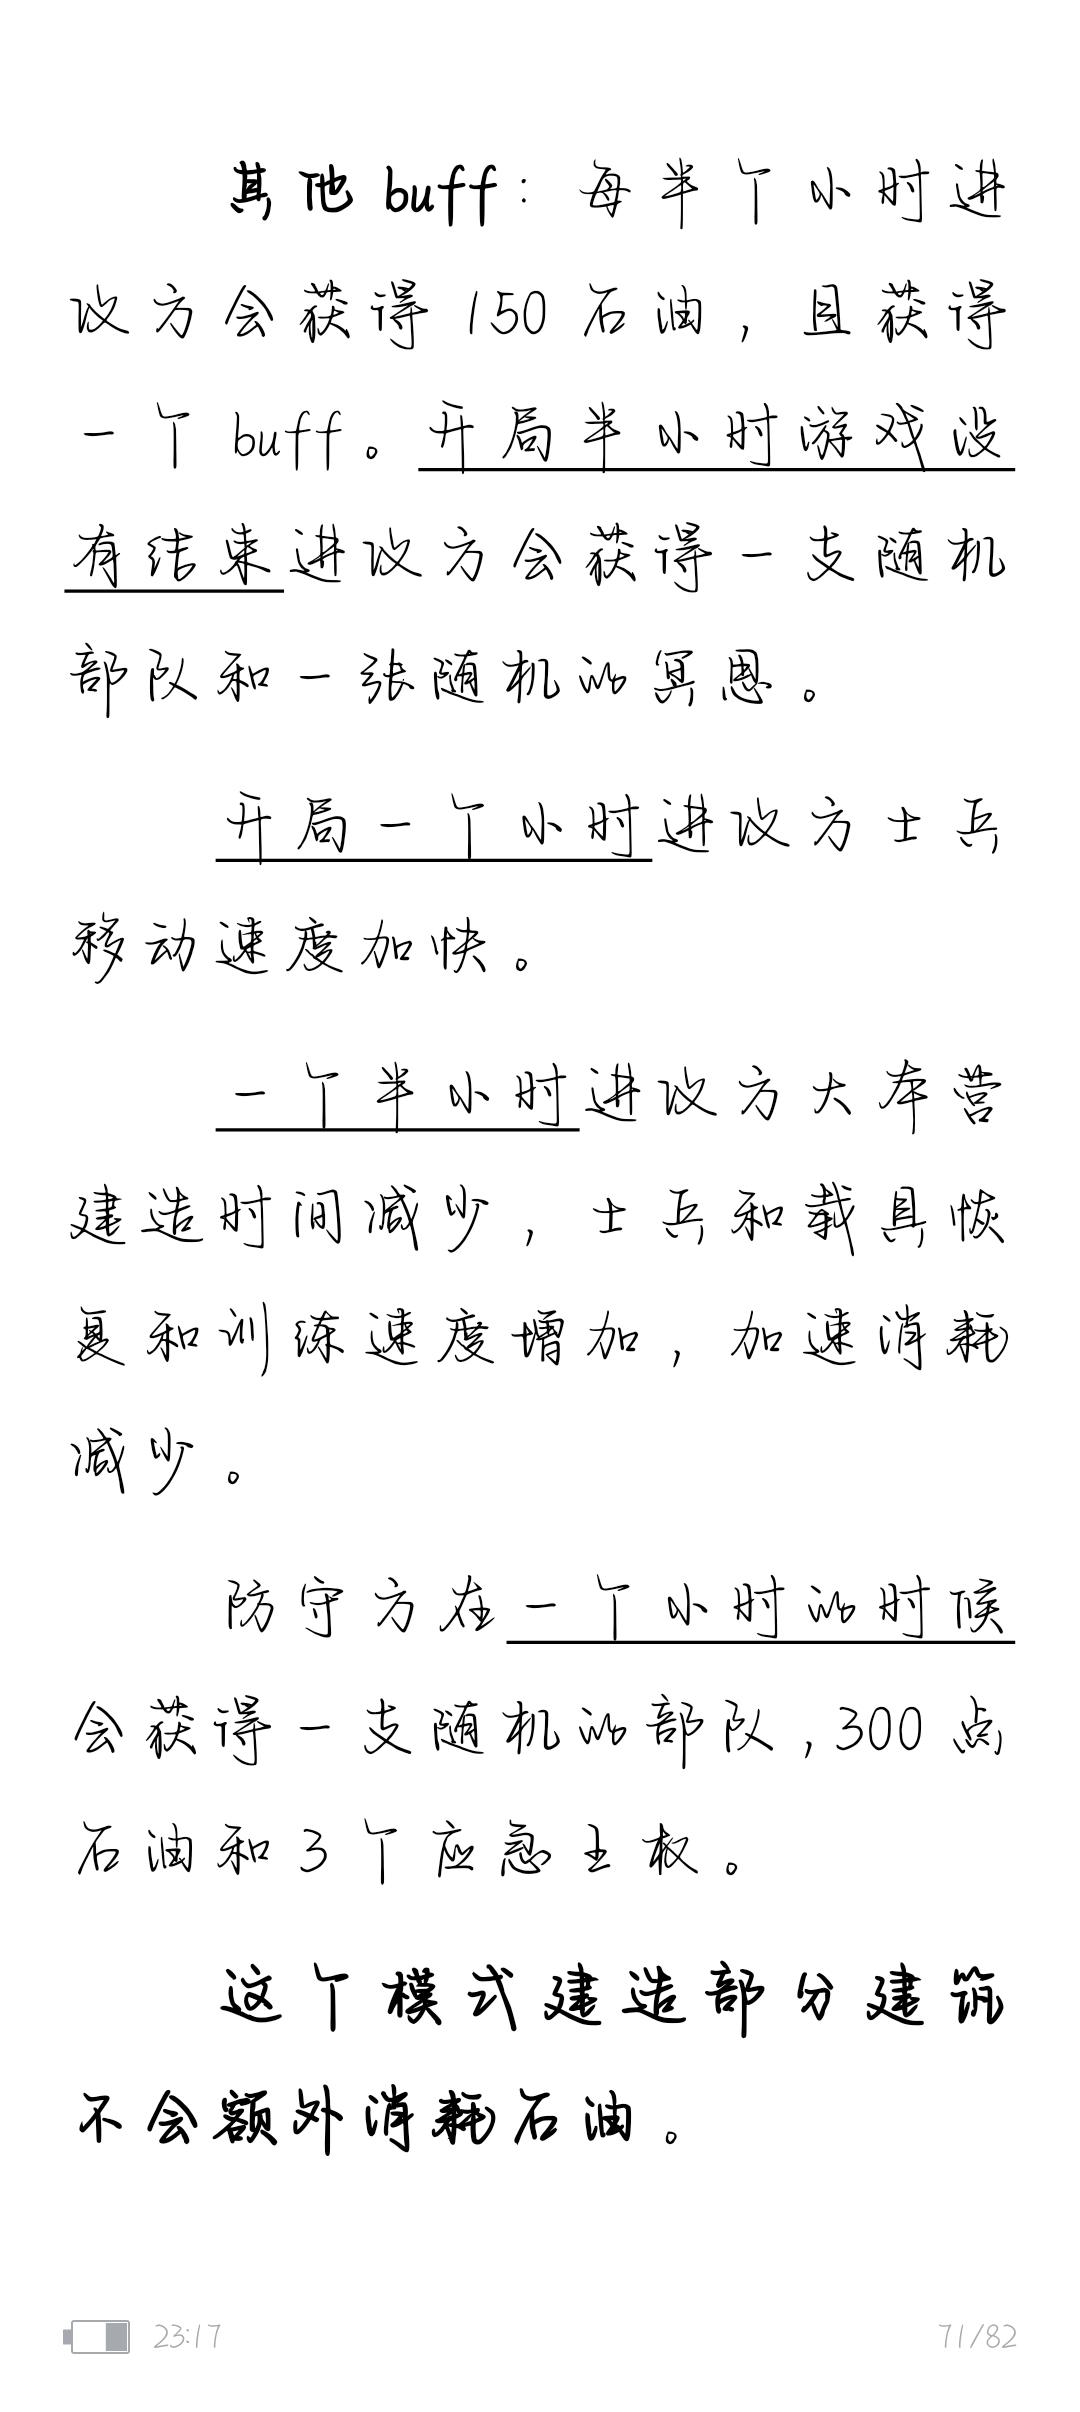 其他buff：每半个小时进
攻方会获得150石油，且获得
一个buff。开局半小时游戏没
有结束进攻方会获得一支随机
部队和一张随机的冥恩。
开局一个小时进攻方士兵
移动速度加快。
一个半小时进攻方大本营
建造时间减少，士兵和载具恢
复和训练速度增加，加速消耗
减少。
防守方在一个小时的时候
会获得一支随机的部队,300点
石油和3个应急主板。
这个模式建造部分建筑
不会额外消耗石油。
23:17 71/82